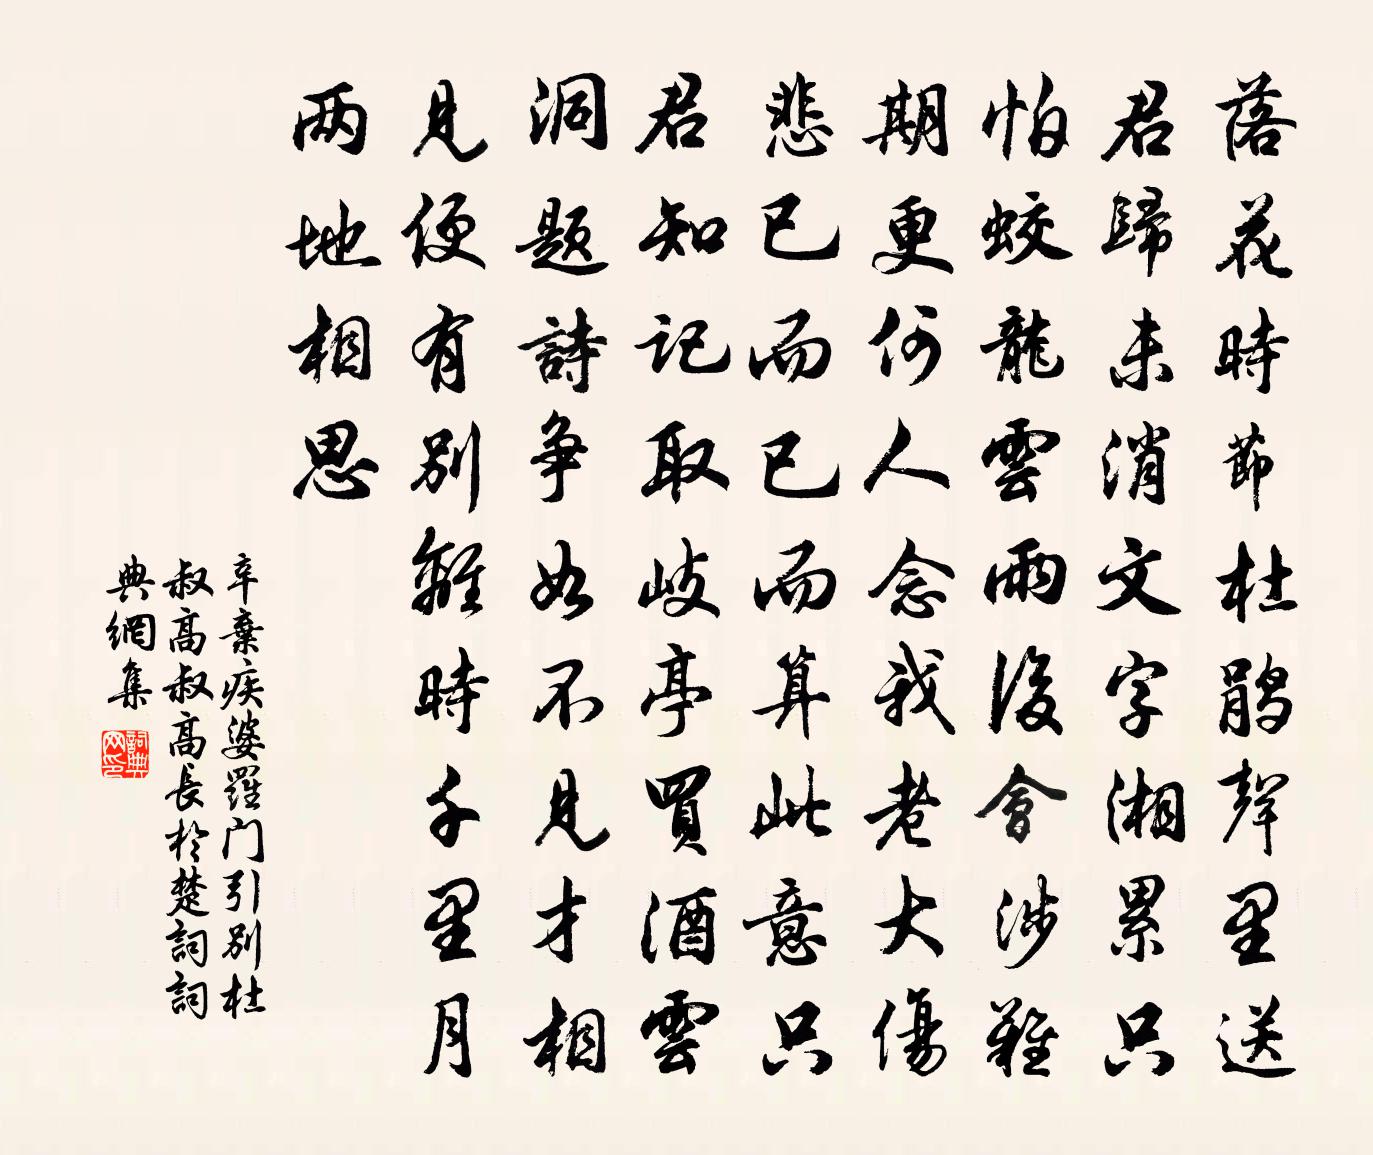 落花時節杜鹃聲里送
君歸未消文字湘累只
怕蛟龍雲雨後會渉難
期更何人念我老大傷
悲已而已而算此意只
君知记取岐亭買酒雲
洞题詩争如不見才相
見便有别離時千里月
两地相思
辛棄疾婆羅门引别杜
叔高叔高長於楚詞詞
典網集
詞典网印